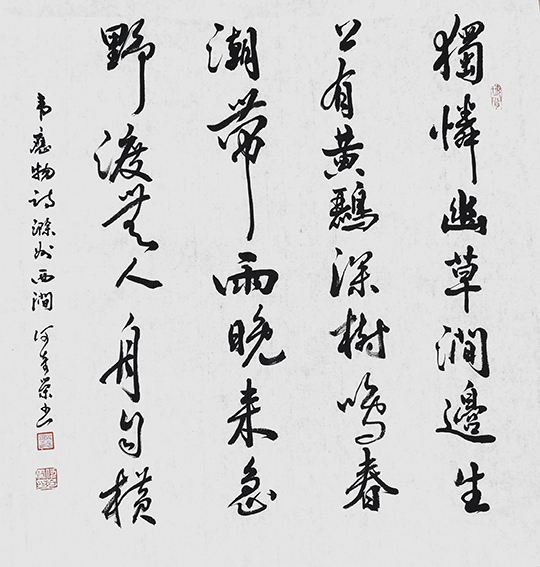 獨憐幽草澗邊生
上有黄鸝深樹鳴春
潮帶雨晚来急
野渡無人舟自横
韦應物诗滁州西澗 何荣书